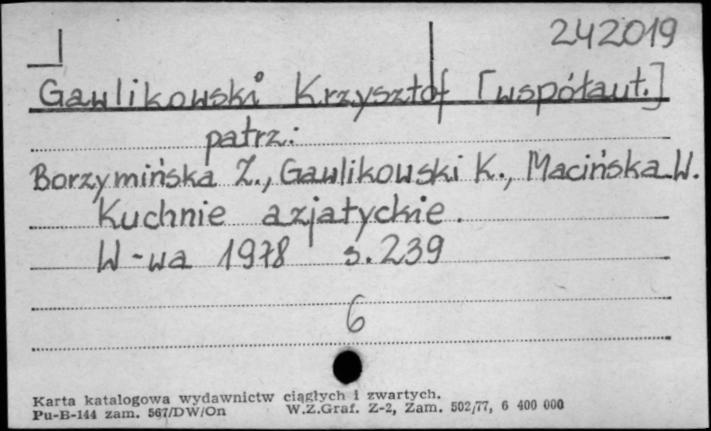 242019
Gawlikowski Krzysztof [współaut.]
patrz:
Borzymińska Z., Gawlikowski K., Macińska W.
Kuchnie azjatyckie.
W-wa 1978 s. 239
6
Karta katalogowa wydawnictw ciągłych i zwartych.
Pu-B-144 zam. 567/DW/On W.Z.Graf. Z-2, Zam. 502/77, 6 400 000